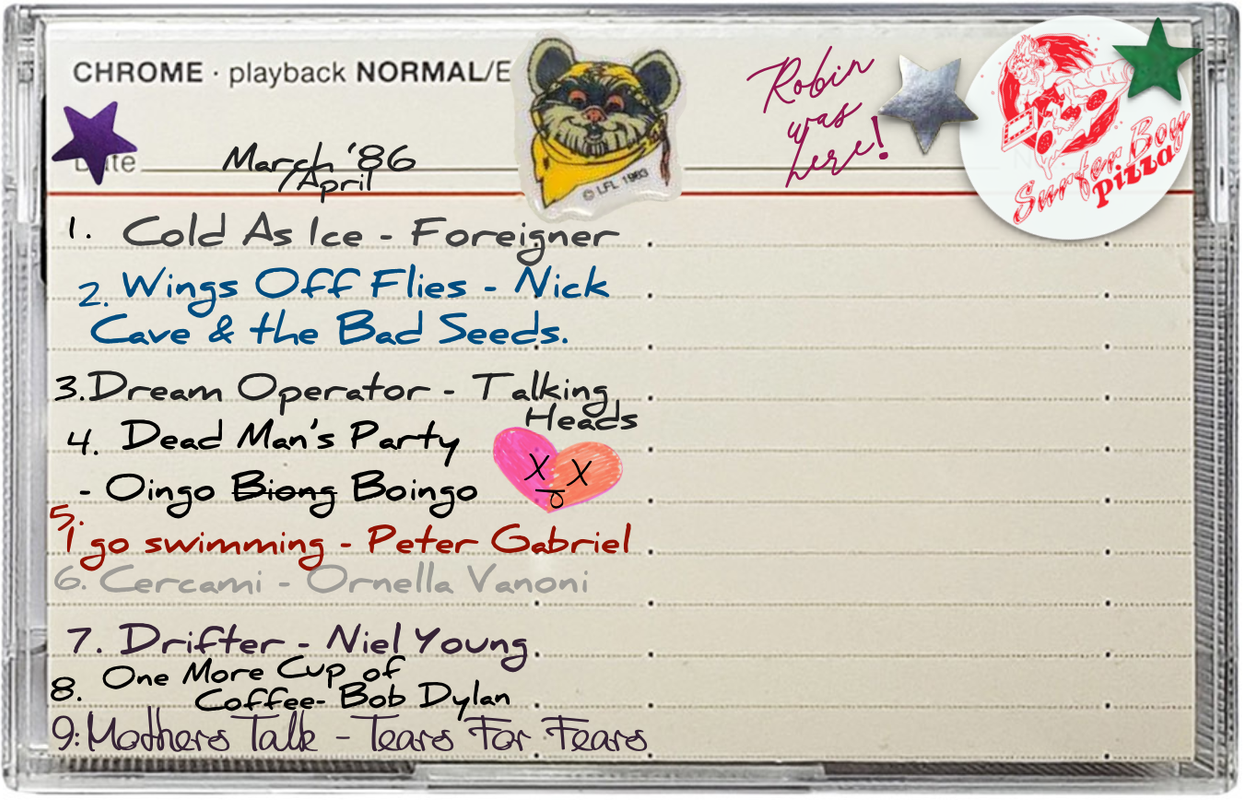 CHROME · playback NORMAL/E
Robin
was
here!
Date
March '86
/April
© LFL 1983
Surfer Boy
pizza
1. Cold As Ice - Foreigner
2. Wings Off Flies - Nick
Cave & the Bad Seeds.
3. Dream Operator - Talking
Heads
4. Dead Man's Party
- Oingo Biong Boingo
5.
I go swimming - Peter Gabriel
6. Cercami - Ornella Vanoni
7. Drifter - Niel Young
8. One More Cup of
Coffee- Bob Dylan
9: Mothers Talk - Tears For Fears